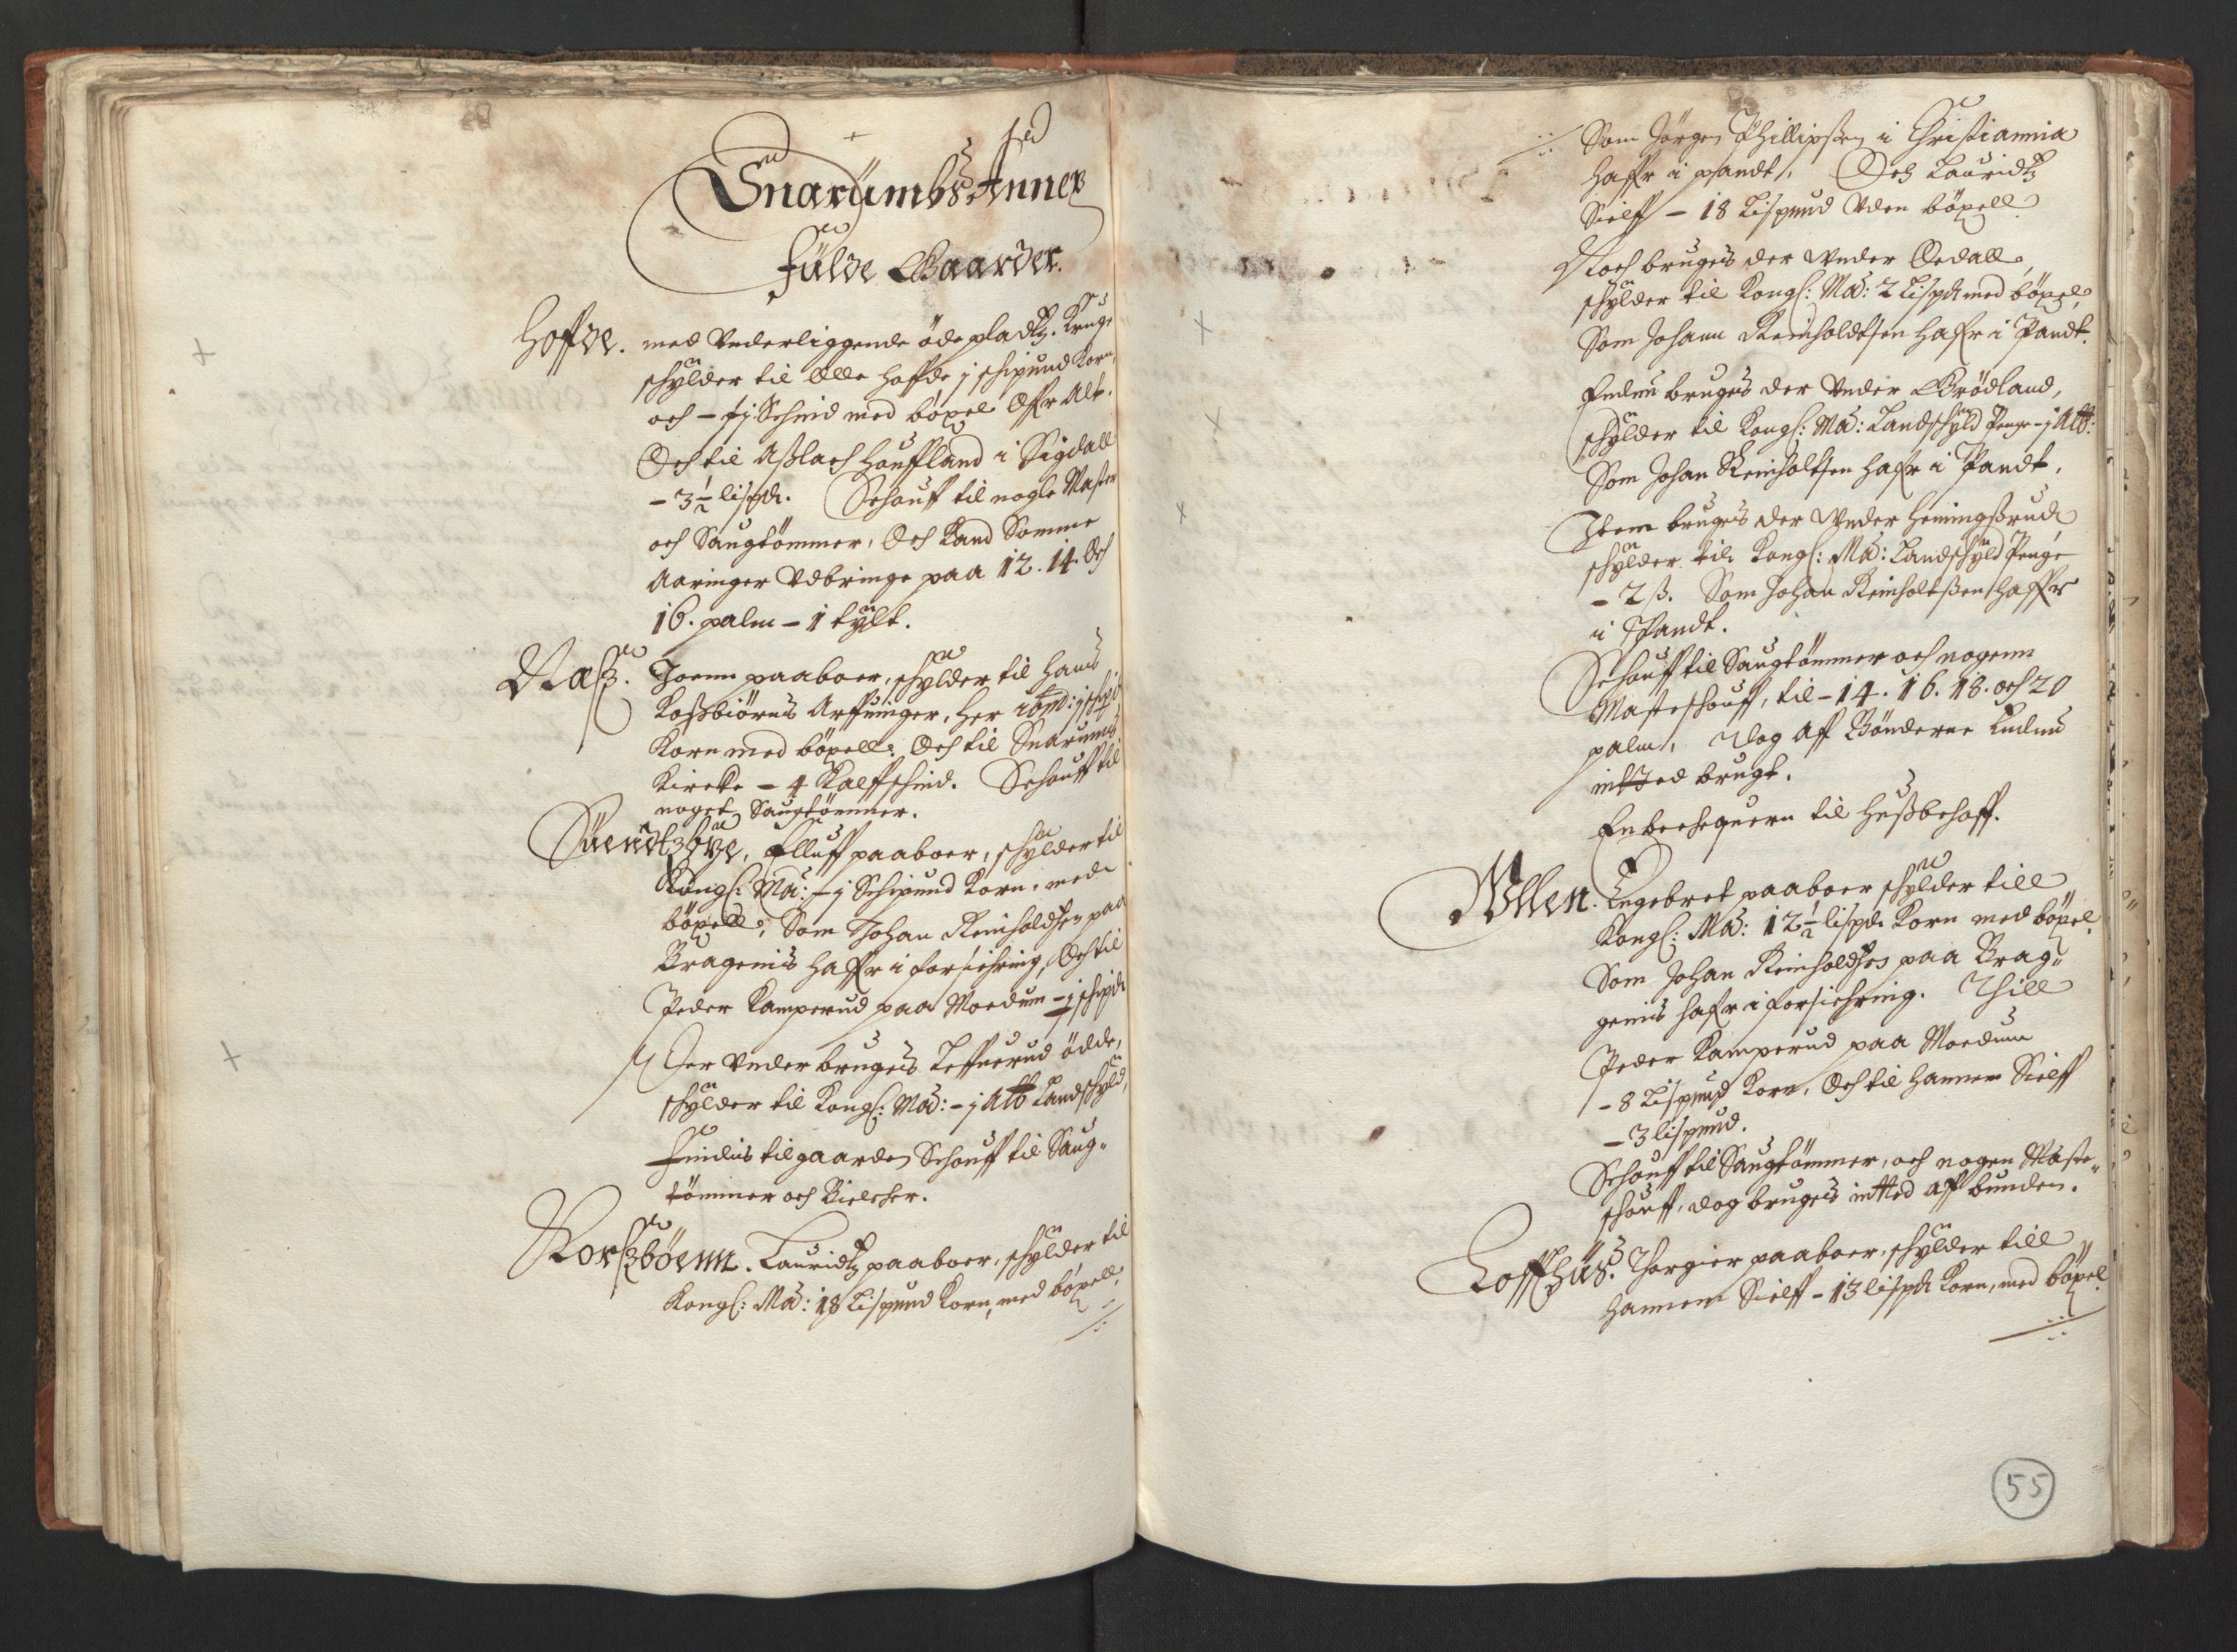 Snarumbs Anner
Fulde Gaarder.
Hoffde. med Underliggende öde pladtz. Kruge
schylder til Olle Hoffde j schipund Korn
och – Schind med böxel Offr Alt.
Och til Aszlach Houffland i Sigdall
– 3½ lispd. Schouff til nogle Master
och Saugtömmer, Och Kand Somme
Aaringer Udbringe paa 12. 14. Och
16. palm – 1 tylt.
Næss. Joenn paaboer, schylder til Hans
Kossbiörns Arffuinger, Her ibm: j schip:
Korn med böxell. Och til Snarums
Kircke – 4 Kalffschind. Schouff til
noget Saugtömmer.
Suendtzbye, Elluff paaboer, schylder til
Kongl: Ma: – j Schipund Korn, med
böxell, Som Johan Reinholdsen paa
Bragenis Haffr i forsichring, Och til
Peder Kamperud paa Moedum – j schipd
Der Under brugis Leffuerud ödde,
schylder til Kongl: Ma: – j Alb Landschyld,
Findis til gaarden Schouff til Saug-
tömmer och Bielcker.
Korszböenn. Lauridtz paaboer, schylder til
Kongl: Ma: 18 Lispund Korn, med böxell,
Som Jörgen Phillipsen i Christiannia
Haffr i pandt, Och Lauridtz
Sielff – 18 Lispund Uden böxell
Noch brugis der Under Oedall,
schylder til Kongl: Ma: 2 Lispd med böxel,
Som Johann Reinholdtsen Haffr i Pandt.
Endnu brugis der Under Brödland,
schylder til Kongl: Ma: Landschyld Penge – j Alb:
Som Johan Reinholtsen Haffr i Pandt,
Item brugis der Under Heningszrud
schylder til Kongl: Ma: Landschyld Penge
– 2 ß. Som Johan Reinholtszen Haffr
i Pandt.
Schouff til Saugtömmer och nogenn
Masteschouff, til – 14. 16. 18. och 20
palm, dog Aff Bönderne Endnu
intted brugt.
En beckequern til Huszbehoff.
Ullen. Engebret paaboer schylder till
Kongl: Ma: 12½ lispd Korn med böxel
Som Johan Reinholdsen paa Brag-
genis Haffr i forsichring. Thill
Peder Kamperud paa Moedum
– 8 Lispund Korn, Och til Hannem Sielff
– 3 lispund.
Schouff til Saugtömmer, och nogen Maste-
schouff, dog brugis intted aff bunden.
Loffthus. Thorgier paaboer, schylder till
Hannem Sielff – 13 lispd Korn, med böxel
55